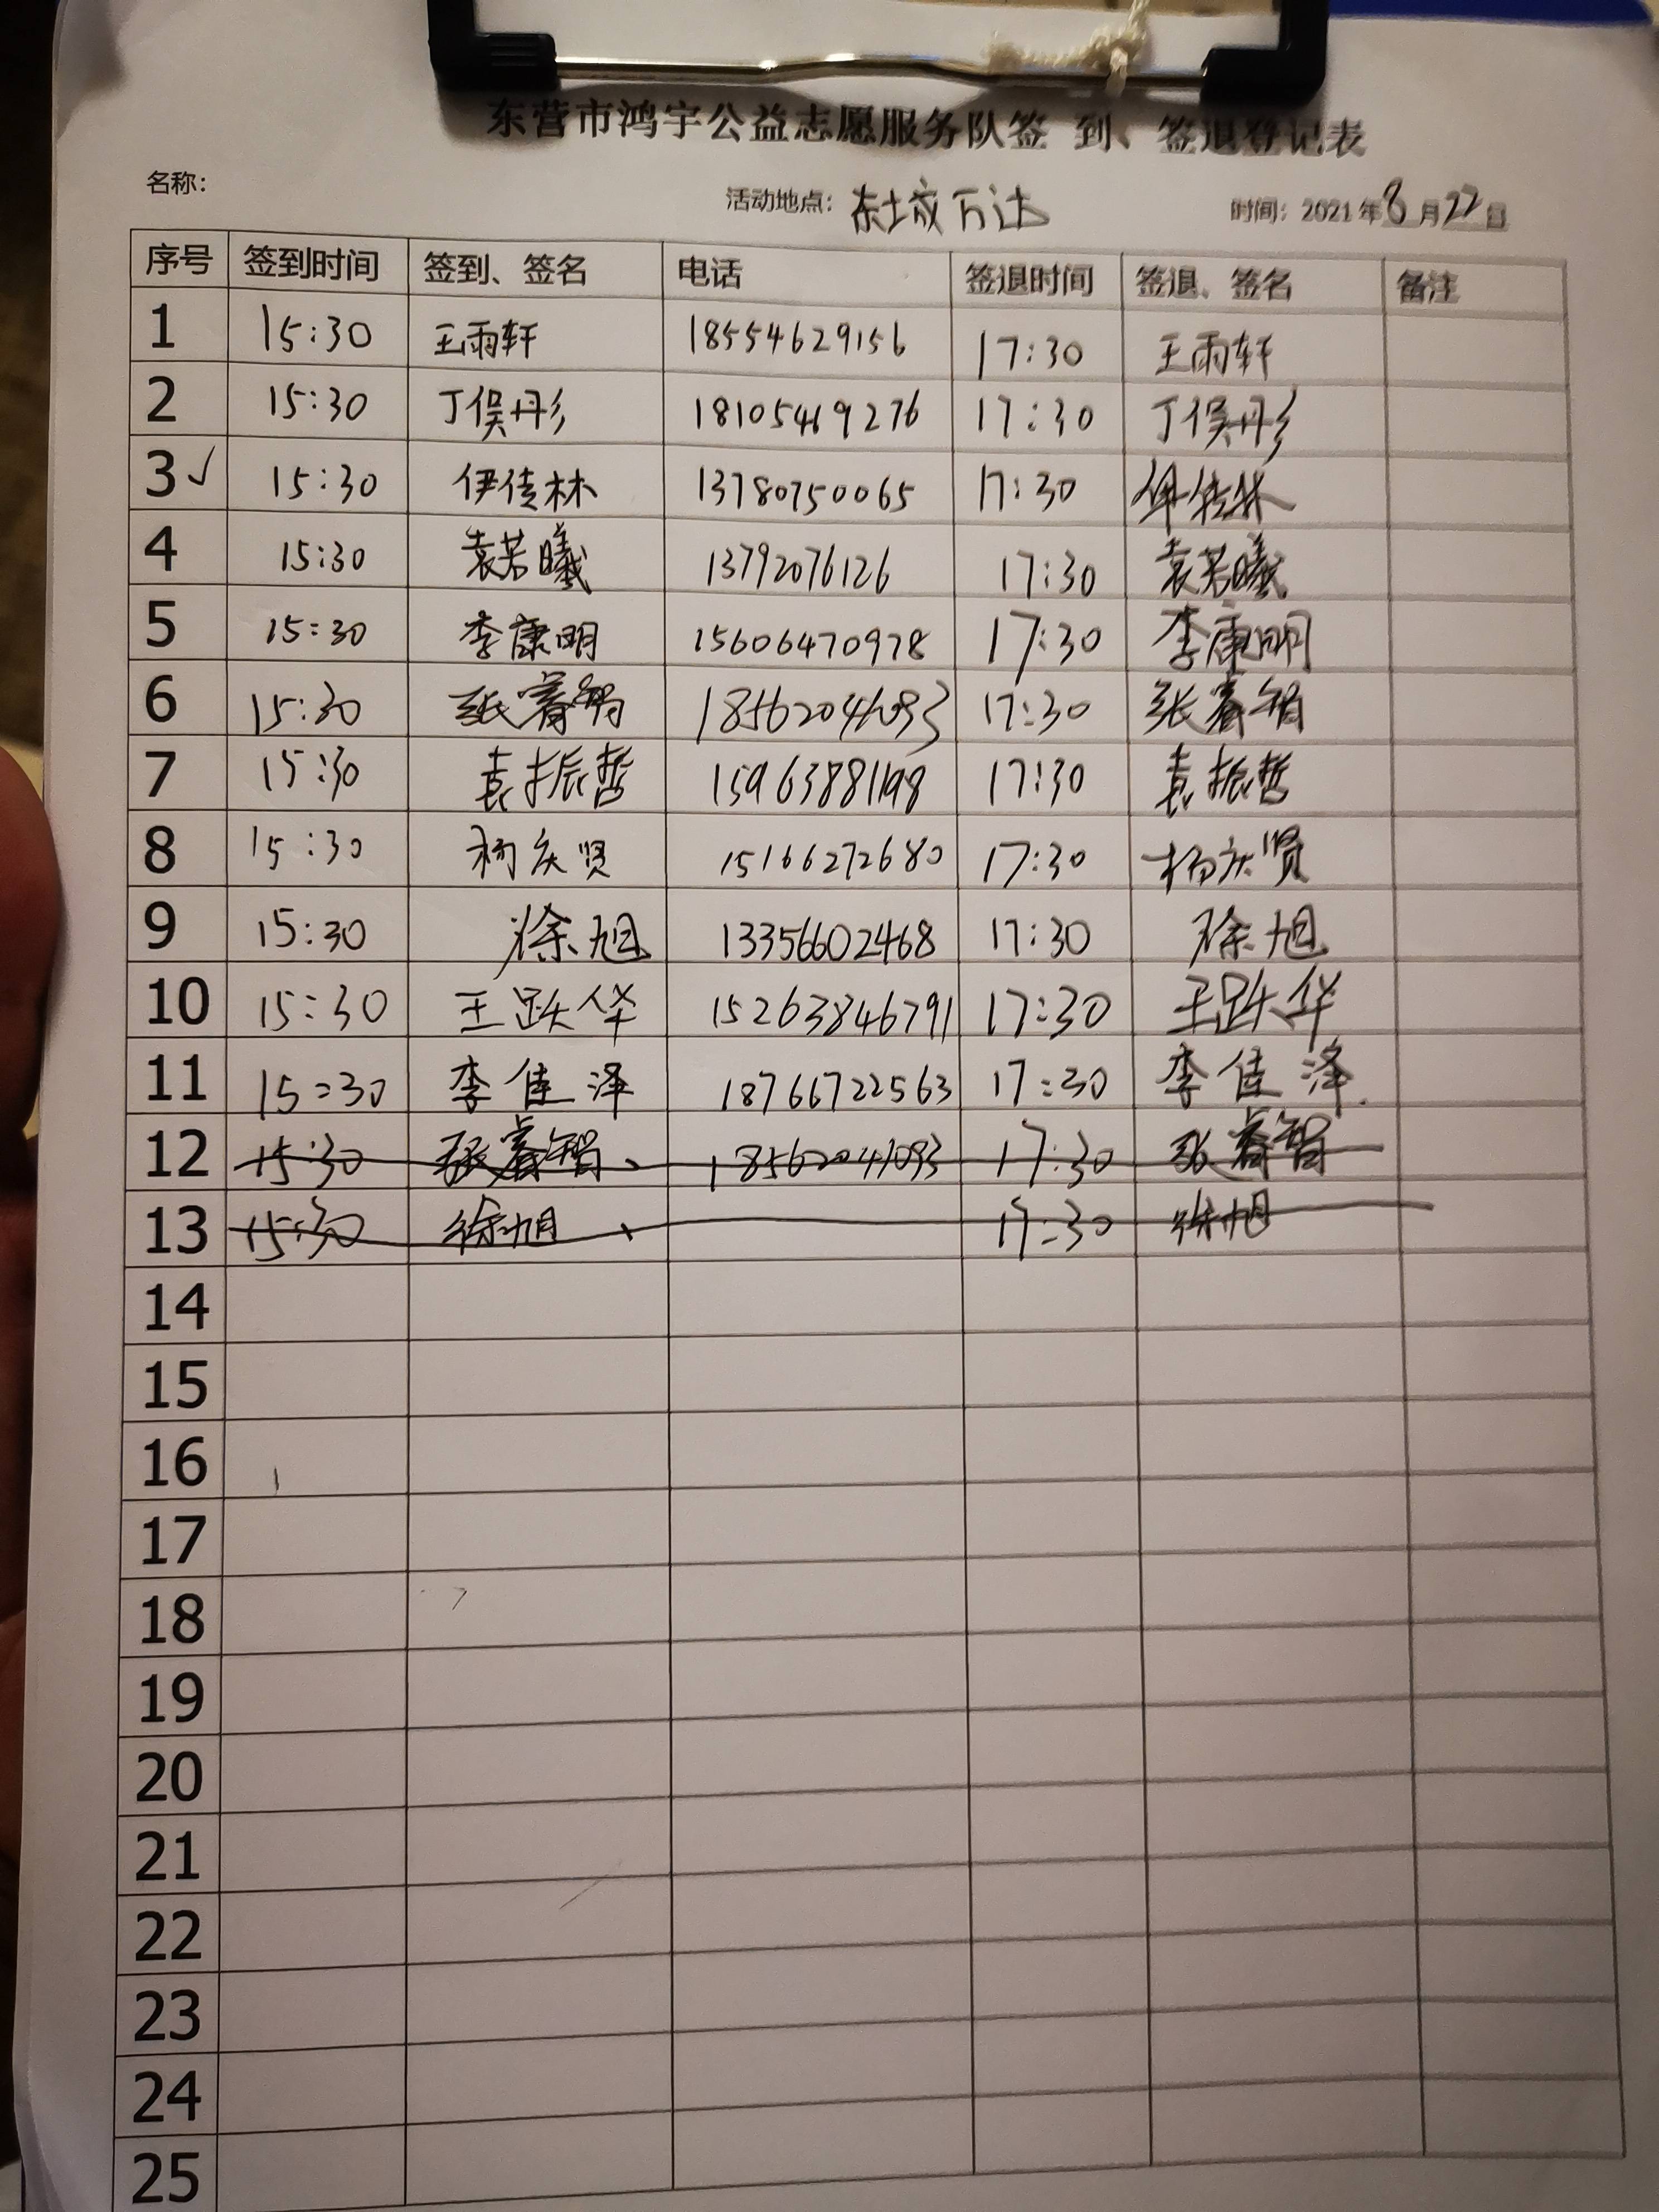 东营市鸿宇公益志愿服务队签 到、签退登记表
名称: 活动地点: 东城万达 时间: 2021年8月22日
序号 签到时间 签到、签名 电话 签退时间 签退、签名 备注
1 15:30 王雨轩 18554629156 17:30 王雨轩
2 15:30 丁俣丹彤 18105469276 17:30 丁俣丹彤
3√ 15:30 伊佳林 13780750065 17:30 伊佳林
4 15:30 袁若曦 13792076126 17:30 袁若曦
5 15:30 李康明 15606470978 17:30 李康明
6 15:30 张睿智 18562041093 17:30 张睿智
7 15:30 袁振哲 15963881198 17:30 袁振哲
8 15:30 杨庆贤 15166272680 17:30 杨庆贤
9 15:30 徐旭 13356602468 17:30 徐旭
10 15:30 王跃华 15263846791 17:30 王跃华
11 15:30 李佳泽 18766722563 17:30 李佳泽
12 15:30 张睿智 18562041093 17:30 张睿智
13 15:30 徐旭 17:30 徐旭
14
15
16
17
18
19
20
21
22
23
24
25